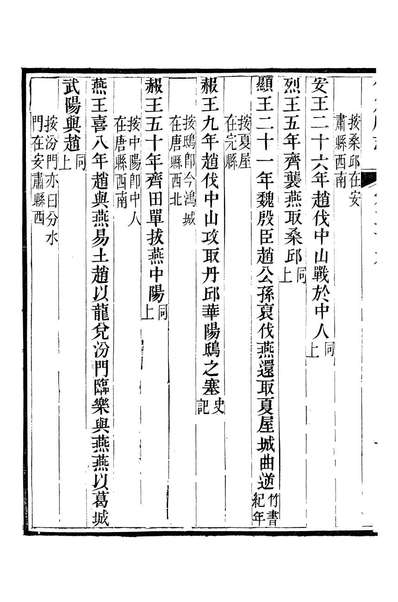 按桑邱在安
肅縣西南
安王二十六年趙伐中山戰於中人同上
烈王五年齊襲燕取桑邱同上
顯王二十一年魏殷臣趙公孫裒伐燕還取夏屋城曲逆竹書紀年
按夏屋
在完縣
赧王九年趙伐中山攻取丹邱華陽鴟之塞史記
按鴟卽今鴻城
在唐縣西北
赧王五十年齊田單拔燕中陽同上
按中陽卽中人
在唐縣西南
燕王喜八年趙與燕易土趙以龍兌汾門臨樂與燕燕以葛城
武陽與趙同上
按汾門亦曰分水
門在安肅縣西